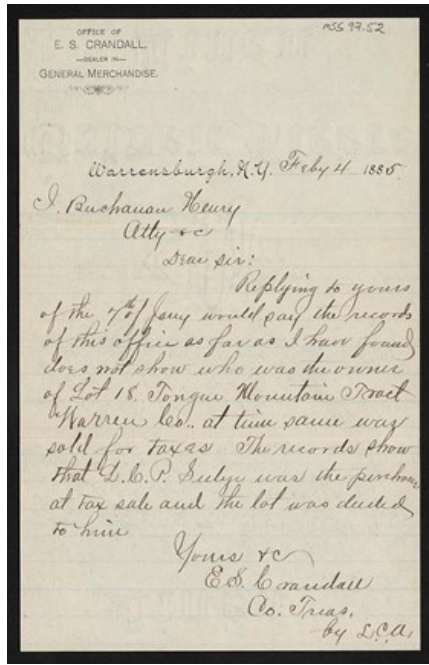 MSS 97.52
OFFICE OF
E. S. CRANDALL,
—DEALER IN—
GENERAL MERCHANDISE.
Warrensburgh, N.Y. Feby 4 1885.
J. Buchanan Henry
Atty &c
Dear Sir:
Replying to yours
of the 7th of Jany would say the records
of this office as far as I have found
does not show who was the owner
of Lot 18. Tongue Mountain Tract
Warren Co., at time same was
sold for taxes. The records show
that L. C. P. Seelye was the purchaser
at tax sale and the lot was deeded
to him
Yours &c
E. S. Crandall
Co. Treas,
by L.C.A.